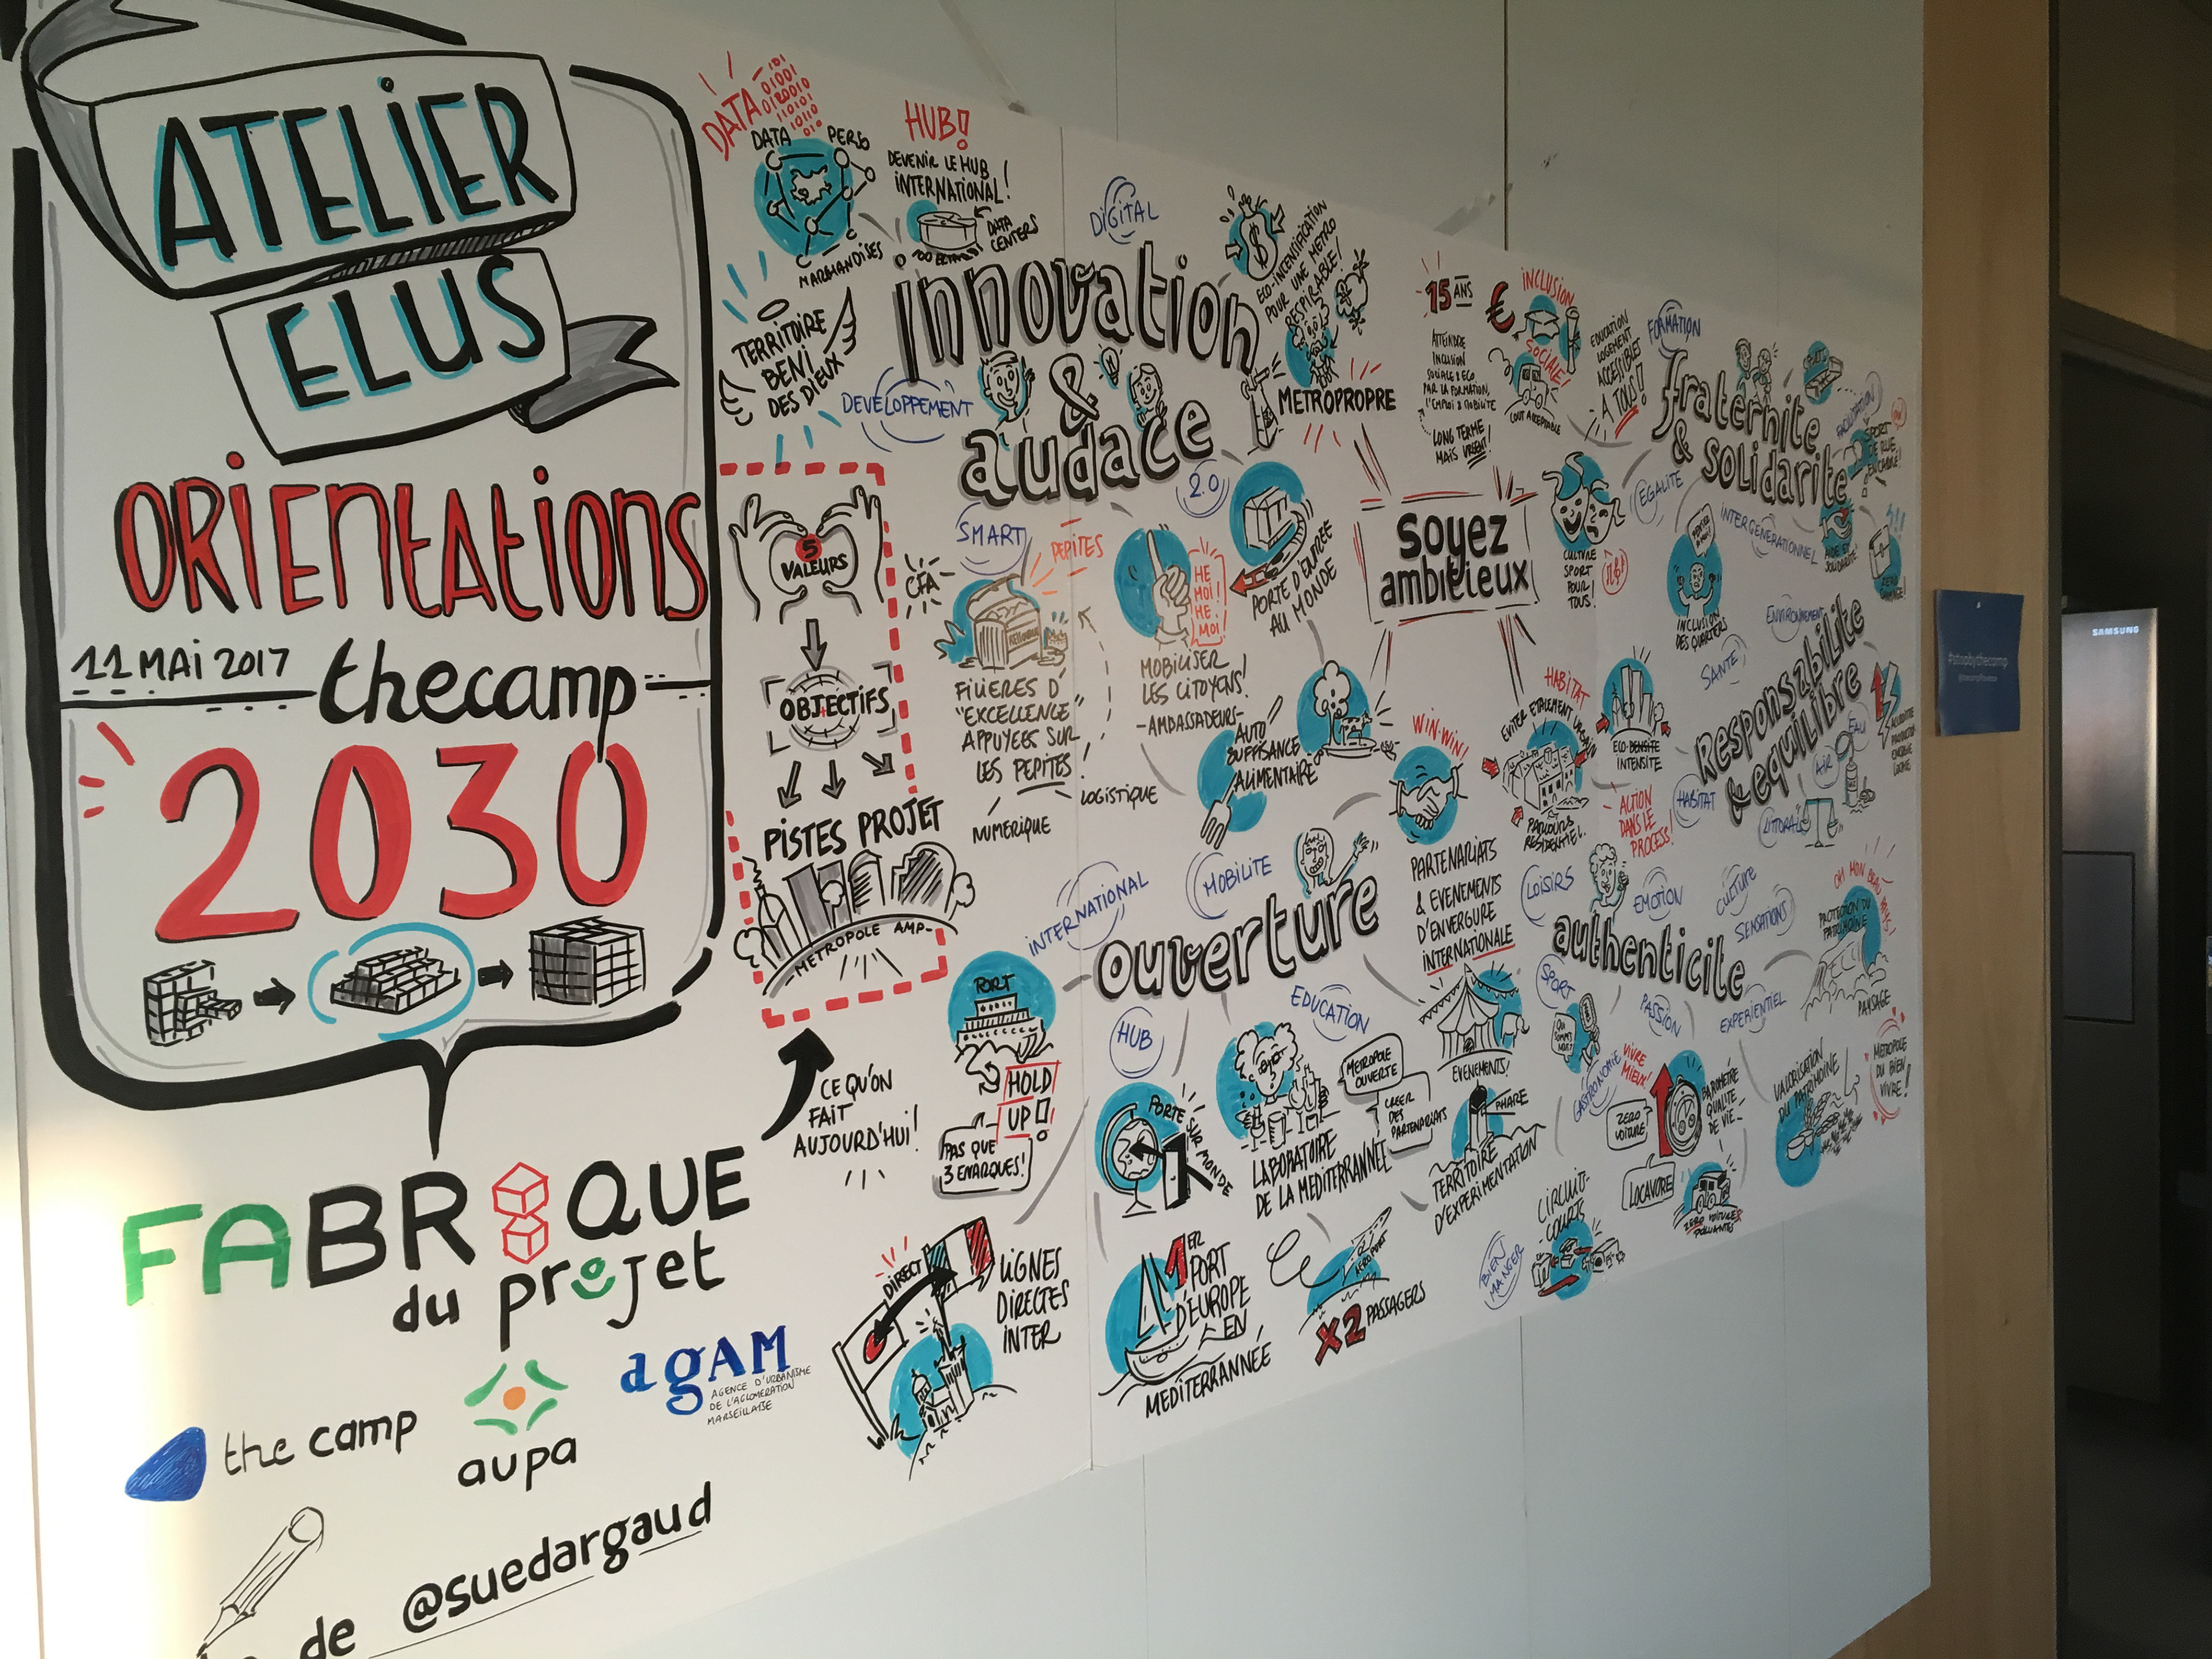 ATELIER
ELUS
ORIENTATIONS
11 MAI 2017
thecamp
2030
FABRIQUE
du projet
the camp
aupa
agAM
AGENCE D'URBANISME
DE L'AGLOMERATION
MARSEILLAISE
de @suedargaud
DATA
01001
DATA
PERSO
MARCHANDISES
HUB!
DEVENIR LE HUB
INTERNATIONAL!
DATA
CENTERS
TERRITOIRE
BENI
DES DIEUX
5
VALEURS
OBJECTIFS
PISTES PROJET
METROPOLE AMP
CE QU'ON
FAIT
AUJOURD'HUI!
DIGITAL
innovation
&
audace
DEVELOPPEMENT
SMART
2.0
ECO-INTENSIFICATION
POUR UNE METRO
RESPIRABLE!
METROPROPRE
CFA
PEPITES
FILIERES D'
"EXCELLENCE"
APPUYEES SUR
LES PEPITES!
NUMERIQUE
LOGISTIQUE
HE
MOI!
HE
MOI!
MOBILISER
LES CITOYENS!
-AMBASSADEURS-
PORTE D'ENTREE
AU MONDE
AUTO
SUFFISANCE
ALIMENTAIRE
soyez
ambitieux
15 ANS
ATTEINDRE
INCLUSION
SOCIALE & ECO
PAR LA FORMATION,
L'EMPLOI & MOBILITE
LONG TERME
MAIS URGENT!
€
INCLUSION
SOCIALE!
COUT ACCEPTABLE
EDUCATION
LOGEMENT
ACCESSIBLES
A TOUS!
FORMATION
fraternite
& solidarite
EGALITE
INTERGENERATIONNEL
CULTURE
SPORT
POUR
TOUS!
INCLUSION
DES QUARTIERS
ENVIRONNEMENT
SANTE
Responsabilite
& equilibre
EAU
AIR
HABITAT
LITTORAL
WIN-WIN!
PARTENARIATS
& EVENEMENTS
D'ENVERGURE
INTERNATIONALE
HABITAT
PARCOURS
RESIDENTIEL
ECO-DENSITE
INTENSITE
ACTION
DANS LE
PROCESS!
INTERNATIONAL
MOBILITE
ouverture
HUB
EDUCATION
PORT
HOLD
UP!
PAS QUE
3 ENARQUES!
PORTE SUR MONDE
LABORATOIRE
DE LA MEDITERRANNEE
METROPOLE
OUVERTE
CREER
DES
PARTENARIATS
EVENEMENTS!
PHARE
TERRITOIRE
D'EXPERIMENTATION
DIRECT
LIGNES
DIRECTES
INTER
1ER
PORT
D'EUROPE
EN
MEDITERRANNÉE
AEROPORT
X2 PASSAGERS
LOISIRS
EMOTION
CULTURE
SENSATIONS
authenticite
SPORT
PASSION
EXPERIENTIEL
GASTRONOMIE
VIVRE
MIEUX!
ZERO
VOITURE!
BAROMETRE
QUALITE
DE VIE
LOCAVORE
ZERO VOITURES
POLLUANTES
CIRCUITS-
COURTS
BIEN
MANGER
PROTECTION DU
PATRIMOINE
PAYSAGE
VALORISATION
DU PATRIMOINE
METROPOLE
DU BIEN
VIVRE!
#stopbythecamp
SAMSUNG